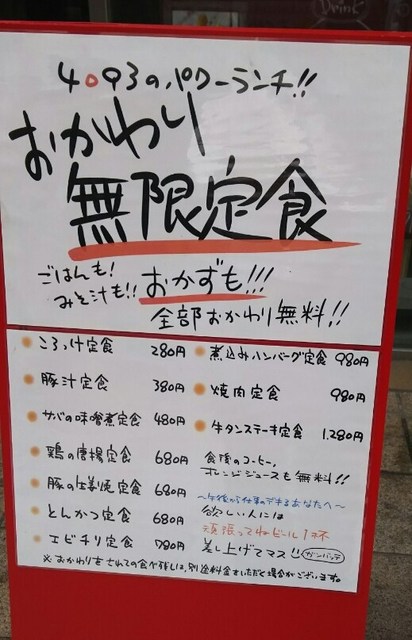 Drink
4093のパワーランチ!!
おかわり
無限定食
ごはんも!
みそ汁も!!
おかずも!!!
全部おかわり無料!!
ころっけ定食 280円
豚汁定食 380円
サバの味噌煮定食 480円
鶏の唐揚定食 680円
豚の生姜焼定食 680円
とんかつ定食 680円
エビチリ定食 780円
煮込みハンバーグ定食 980円
焼肉定食 980円
牛タンステーキ定食 1,280円
食後のコーヒー、
オレンジジュースも無料!!
〜午後から仕事のできるあなたへ〜
欲しい人には
頑張ってねビール1杯
差し上げてマス!! ガンバッテ
※おかわりをされての食べ残しは、別途料金をいただく場合がございます。